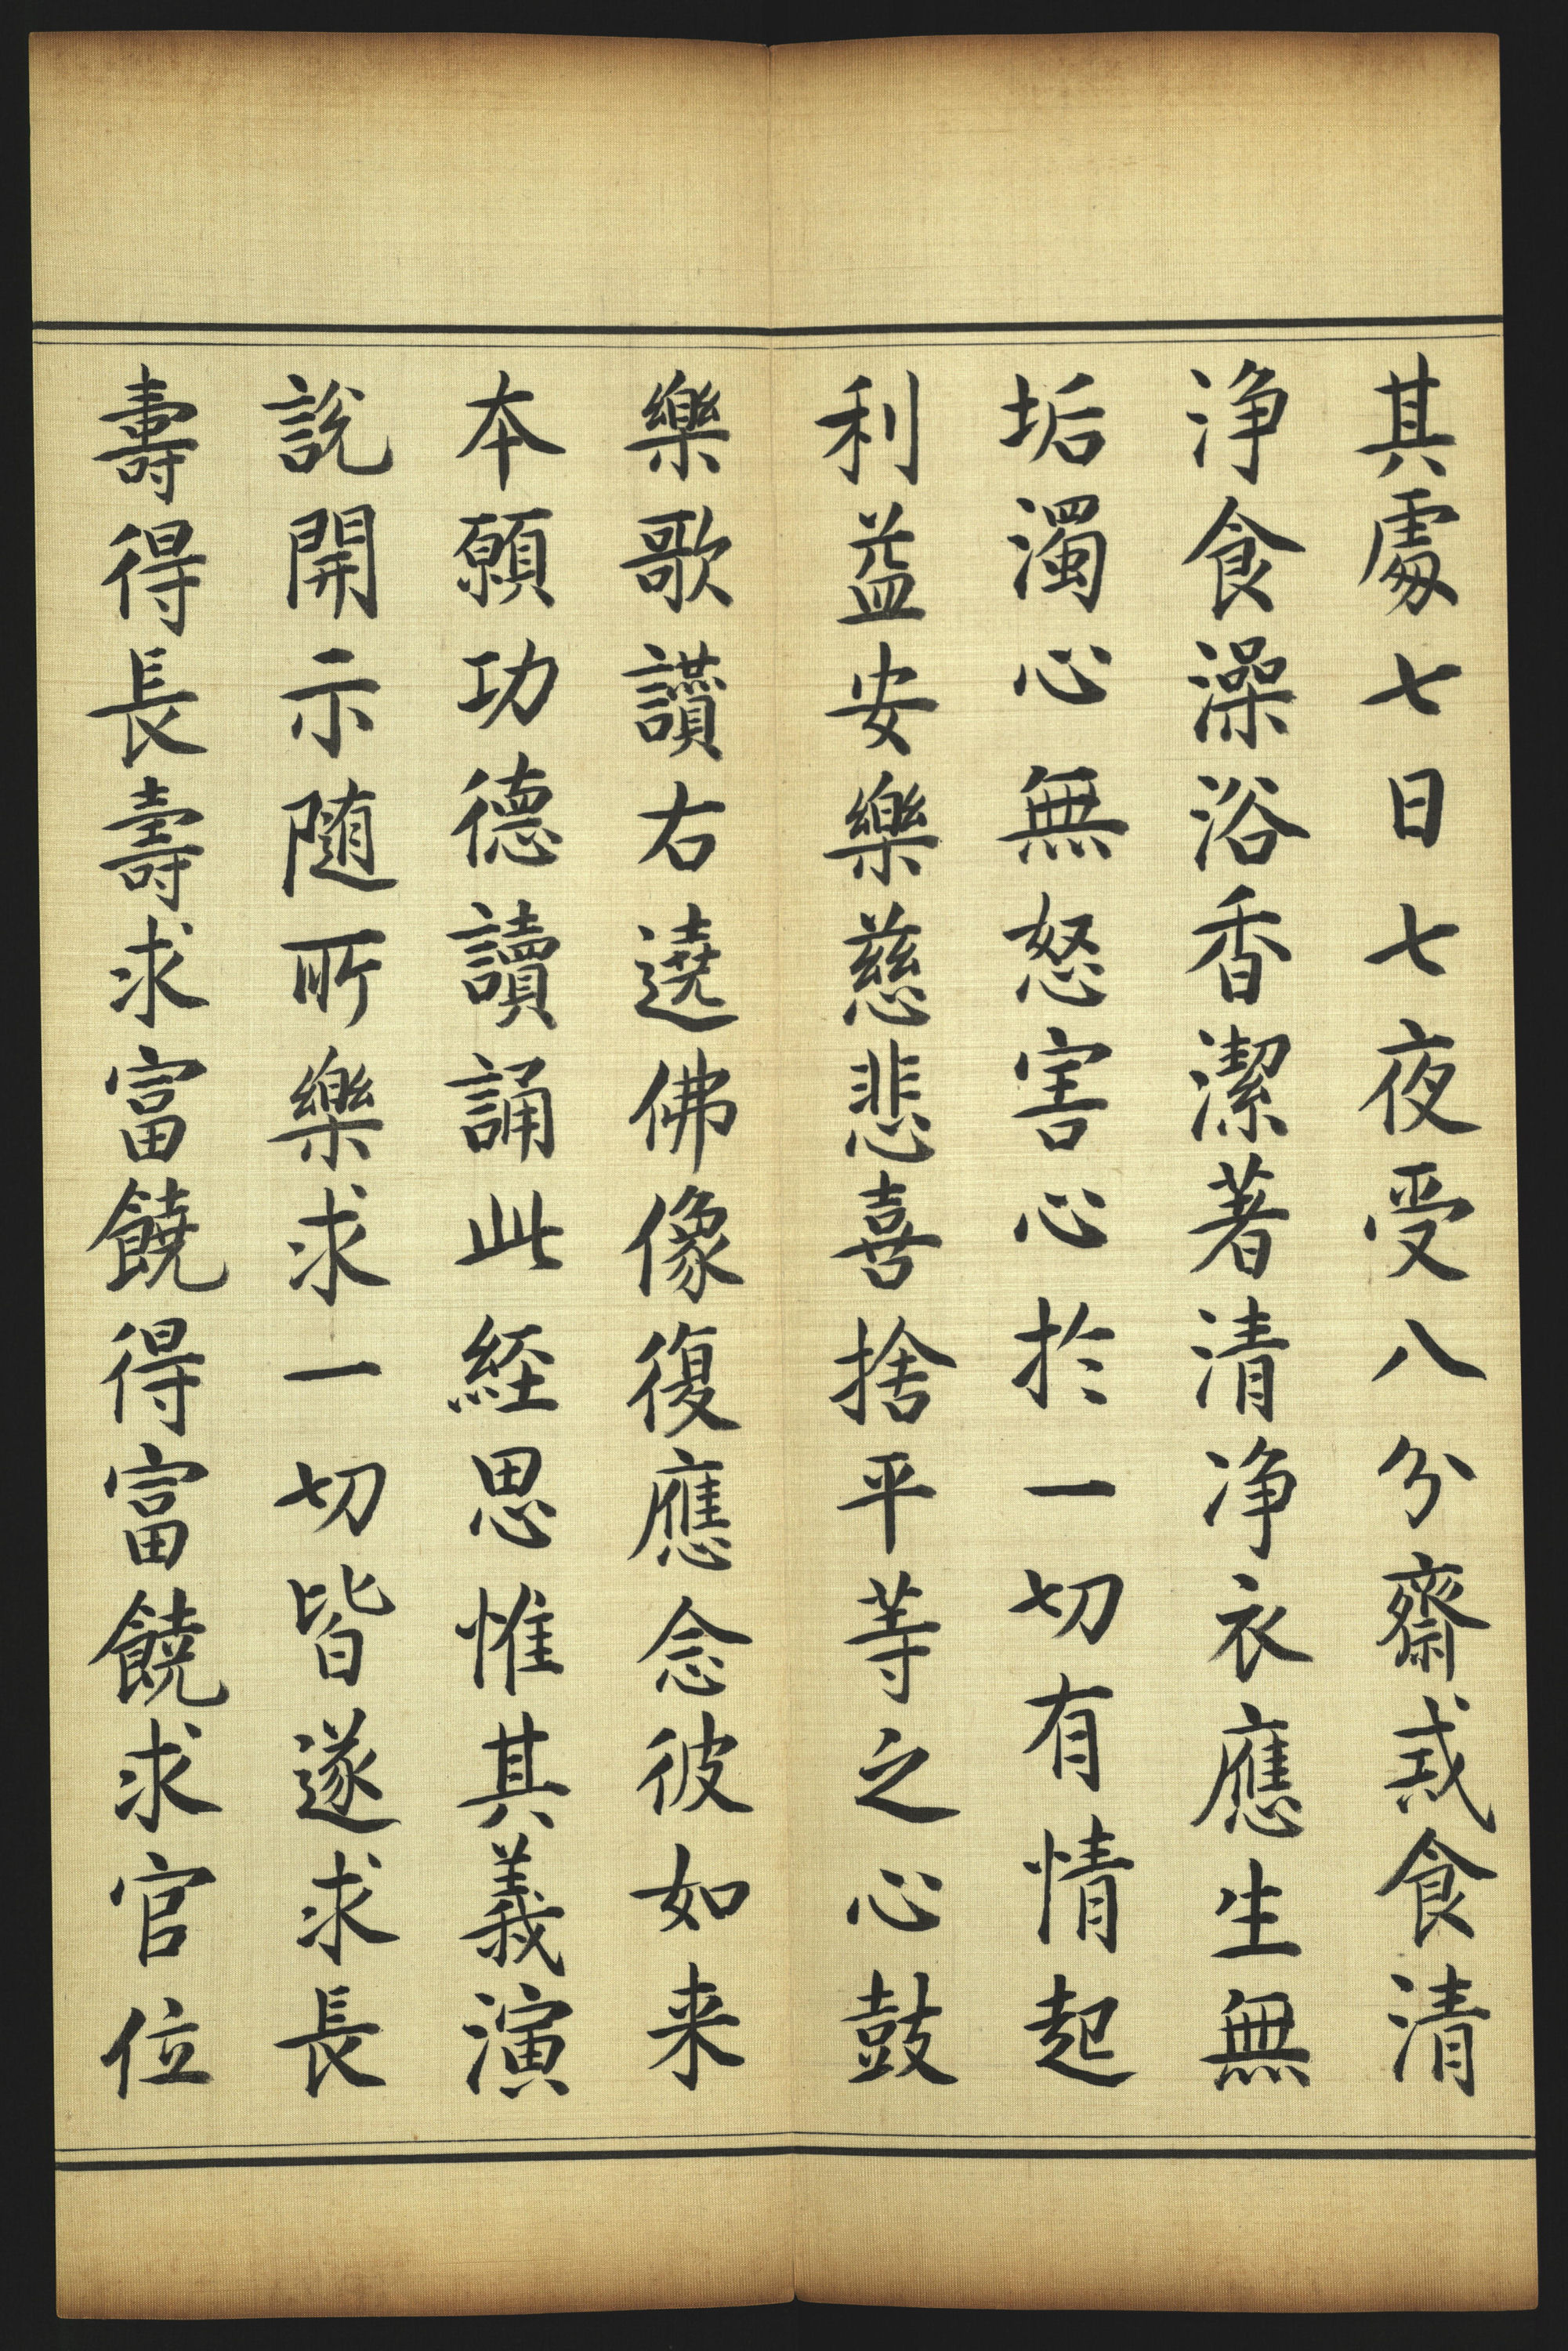 其處七日七夜受八分齋戒食清
淨食澡浴香潔著清淨衣應生無
垢濁心無怒害心於一切有情起
利益安樂慈悲喜捨平等之心鼓
樂歌讚右遶佛像復應念彼如来
本願功德讀誦此経思惟其義演
說開示随所樂求一切皆遂求長
壽得長壽求富饒得富饒求官位